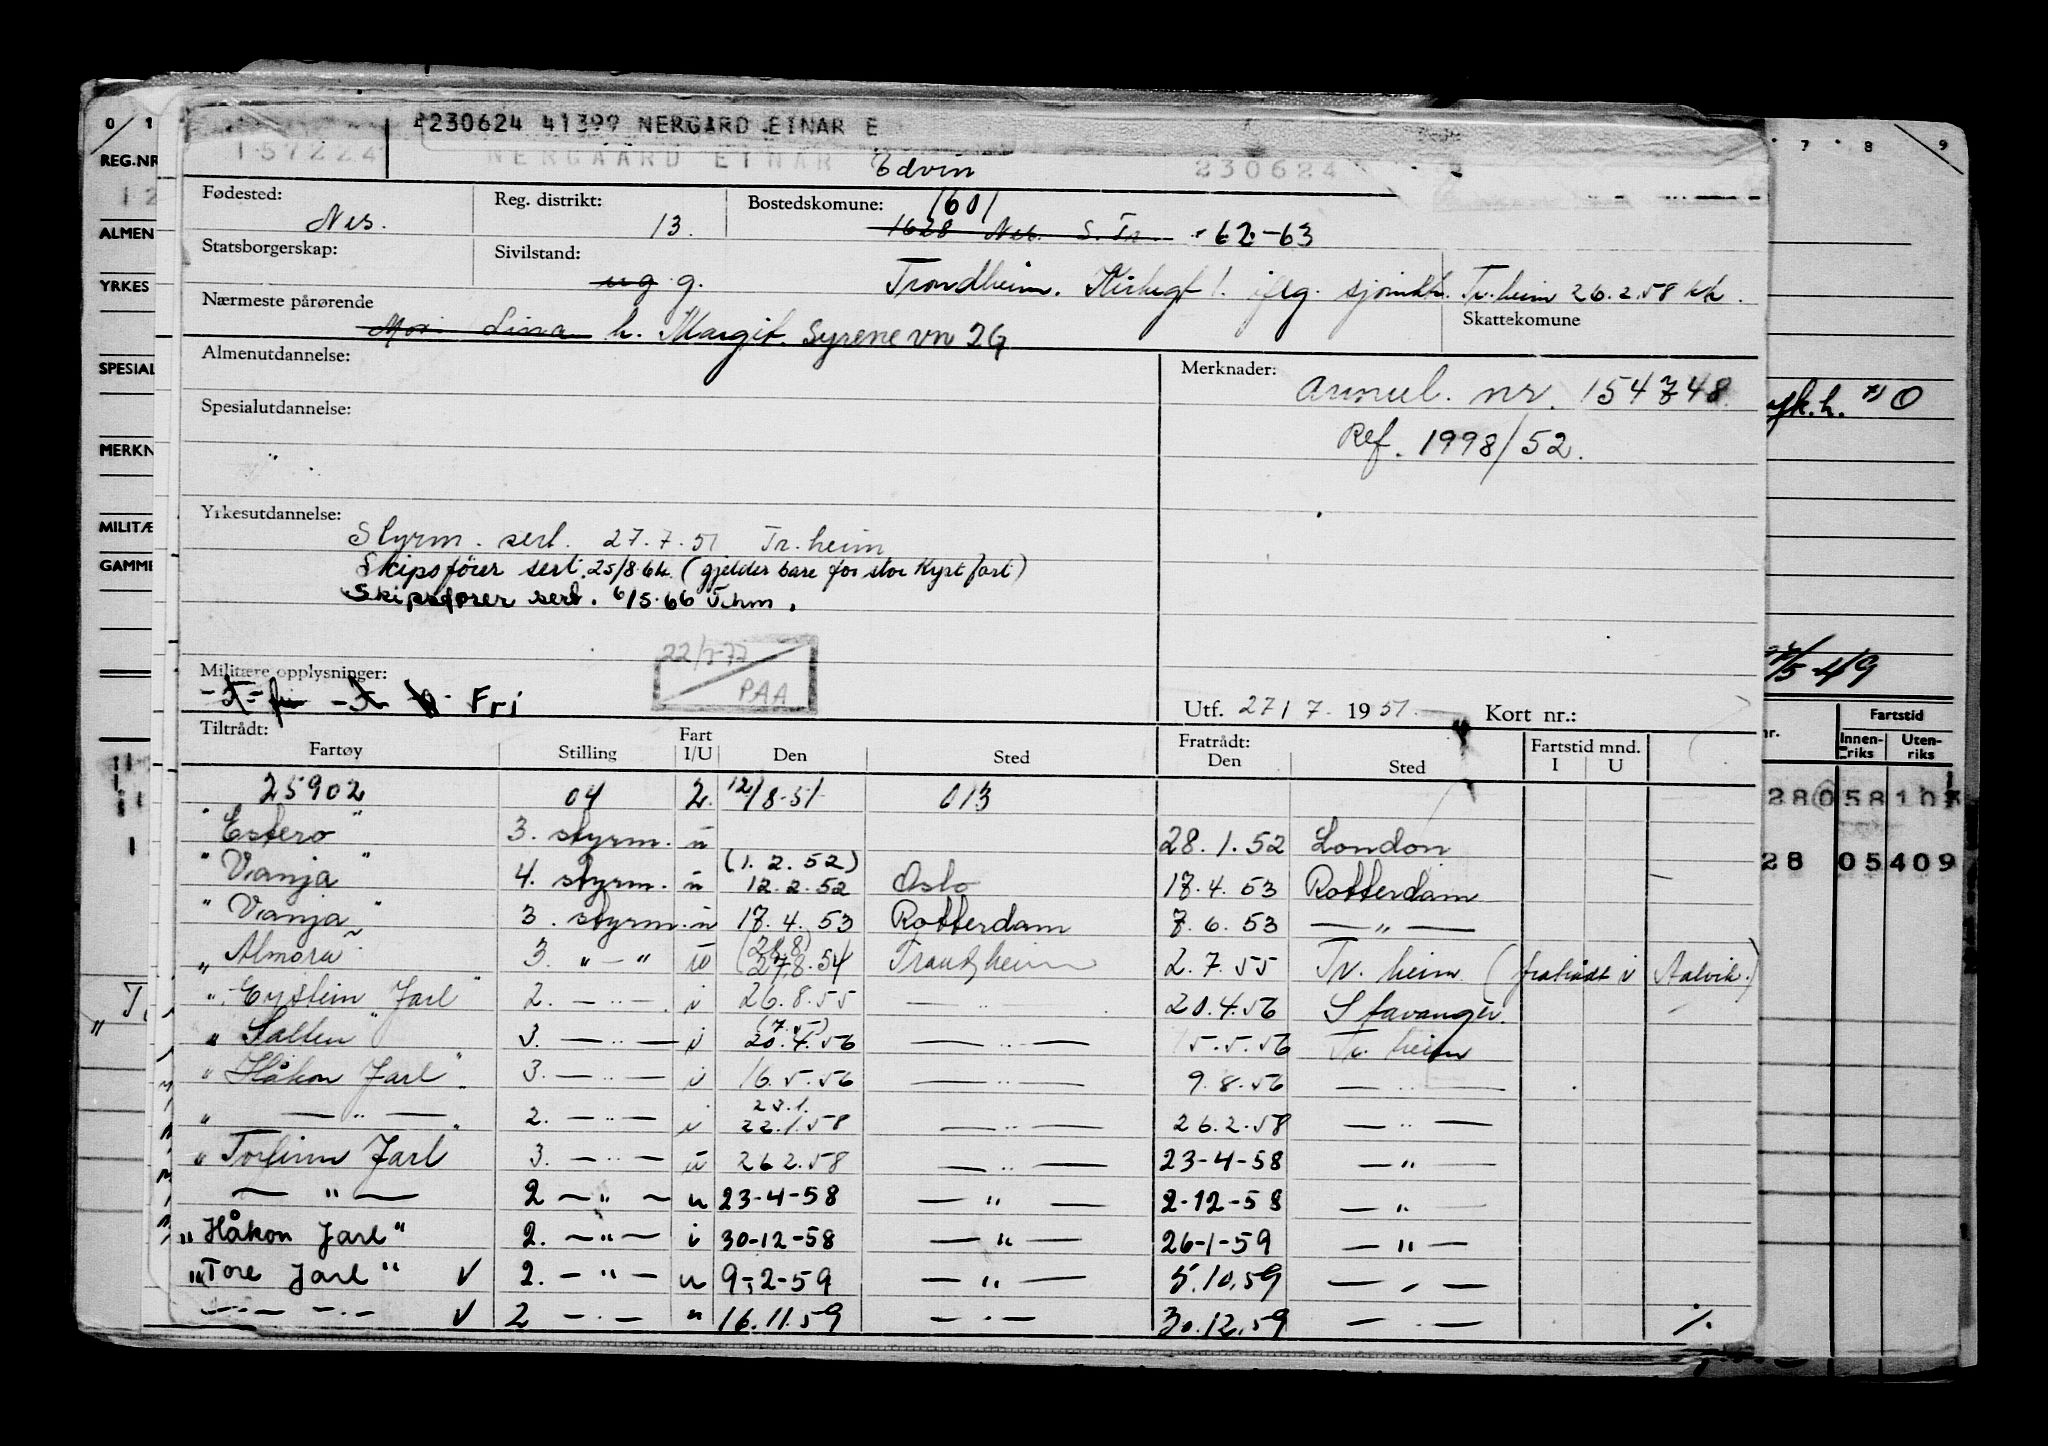 230624 41399 NERGÅRD EINAR E
157224 NERGAARD EINAR Edvin 230624
Fødested: Reg. distrikt: Bostedskomune: 1601
Nes. 13. 1628 Nes. S. Tr. 62-63
Statsborgerskap: Sivilstand:
ug g. Trondheim. iflg. Tr.heim 26.2.58
Nærmeste pårørende Skattekomune
Mor: Lina h. Margit. Syrene vn 2G
Almenutdannelse: Merknader: Annul. nr. 154748
Spesialutdannelse: Ref. 1998/52.
Yrkesutdannelse: Styrm. sert. 27.7.51 Tr.heim
Skipsfører sert. 25/8.64. (gjelder bare for stor Kystfart)
Skipsfører sert. 6/5.66 Trhm.
22/5-77
PAA
Militære opplysninger:
Fri
Utf. 27/7. 1951. Kort nr.:
Tiltrådt: Fart Fratrådt: Fartstid mnd.
Fartøy Stilling I/U Den Sted Den Sted I U
25902 04 2. 12/8-51 013
"Estero" 3. styrm. u 28.1.52 London
(1.2.52)
"Vanja" 4. styrm. u 12.2.52 Oslo 17.4.53 Rotterdam
"Vanja" 3. styrm. u 17.4.53 Rotterdam 7.6.53 — " —
(28.8)
"Almora" 3. " — " 27.8.54 Trondheim 2.7.55 Tr. heim (fratrådt i Aalvik.)
"Eystein Jarl" 2. — " — i 26.8.55 — " — 20.4.56 Stavanger.
"Salten" 3. — " — i 20.4.56 — " — 15.5.56 Tr. heim
"Håkon Jarl" 3. — " — i 16.5.56 — " — 9.8.56 — " —
23.1.
" — " — 2. — " — i 22.1.58 — " — 26.2.58 — " —
"Torfinn Jarl" 3. — " — u 26.2.58 — " — 23-4-58 — " —
— " — 2 — " — u 23-4-58 — " — 2-12-58 — " —
"Håkon Jarl" 2. — " — i 30-12-58 — " — 26-1-59 — " —
"Tore Jarl" V 2. — " — u 9-2-59 — " — 5.10.59 — " —
— " — V 2 — " — " 16.11.59 — " — 30.12.59 — " — ./.
0 1
REG.NR
12
ALMEN
YRKES
SPESIAL
MERKN
MILITÆ
GAMME
7 8 9
Fartstid
nr. Innen-riks Uten-riks
28058107
28 05409